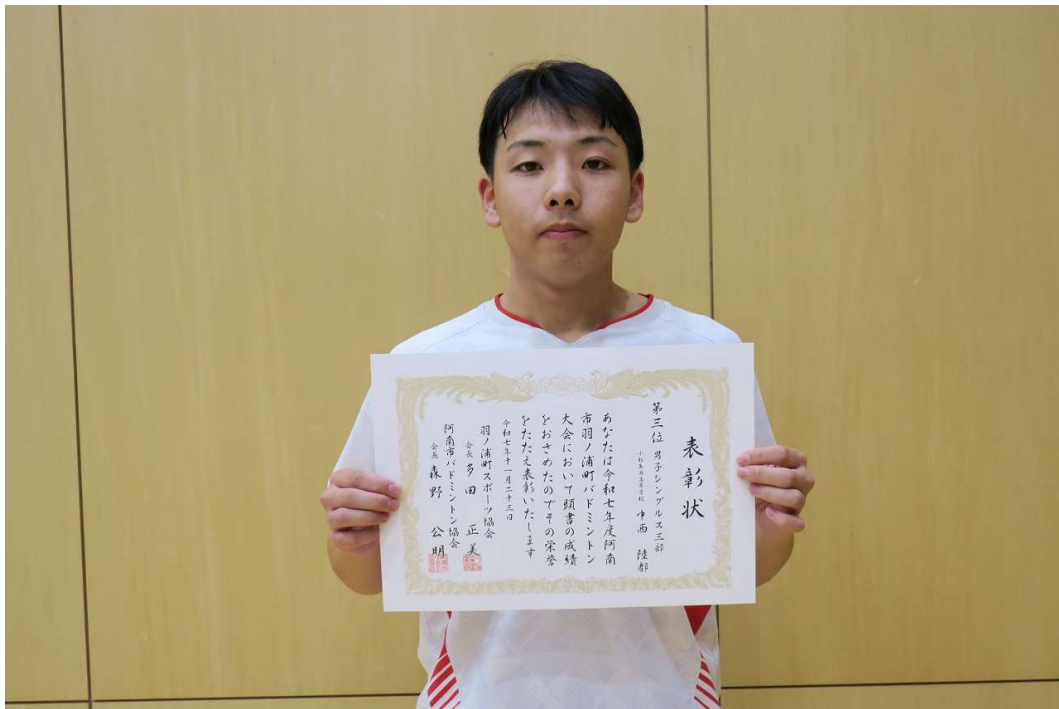 表彰状
第三位 男子シングルス三部
小松島西高等学校 中西 陸都
あなたは令和七年度阿南
市羽ノ浦町バドミントン
大会において頭書の成績
をおさめたのでその栄誉
をたたえ表彰いたします
令和七年十一月二十三日
羽ノ浦町スポーツ協会
会長 多田 正美
阿南市バドミントン協会
会長 森野 公明